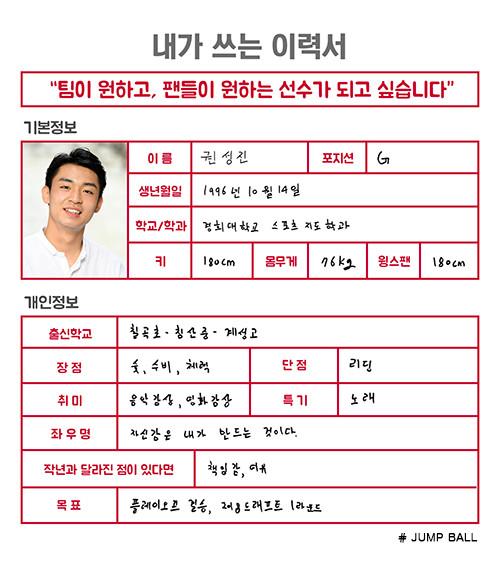 내가 쓰는 이력서
“팀이 원하고, 팬들이 원하는 선수가 되고 싶습니다”
기본정보
이 름 권성진 포지션 G
생년월일 1996년 10월 14일
학교/학과 경희대학교 스포츠 지도학과
키 180cm 몸무게 76kg 윙스팬 180cm
개인정보
출신학교 칠곡초 - 침산중 - 계성고
장 점 슛, 수비, 체력 단 점 리딩
취 미 음악감상, 영화감상 특 기 노래
좌 우 명 자신감은 내가 만드는 것이다.
작년과 달라진 점이 있다면 책임감, 여유
목 표 플레이오프 결승, 프로드래프트 1라운드
# JUMP BALL